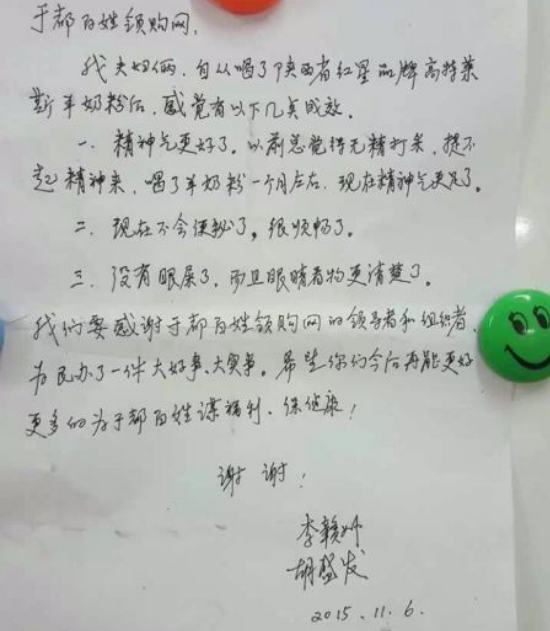 于都百姓领购网,
我夫妇俩,自从喝了陕西省红星品牌高特莱
斯羊奶粉后,感觉有以下几点成效。
一、精神气更好了。以前总觉得无精打采,提不
起精神来,喝了羊奶粉一个月左右,现在精神气更足了。
二、现在不会便秘了,很顺畅了。
三、没有眼屎了,而且眼睛看物更清楚了。
我们要感谢于都百姓领购网的领导者和组织者,
为民办了一件大好事、大实事。希望你们今后再能更好
更多的为于都百姓谋福利、保健康!
谢谢!
李赣
胡盛发
2015.11.6.